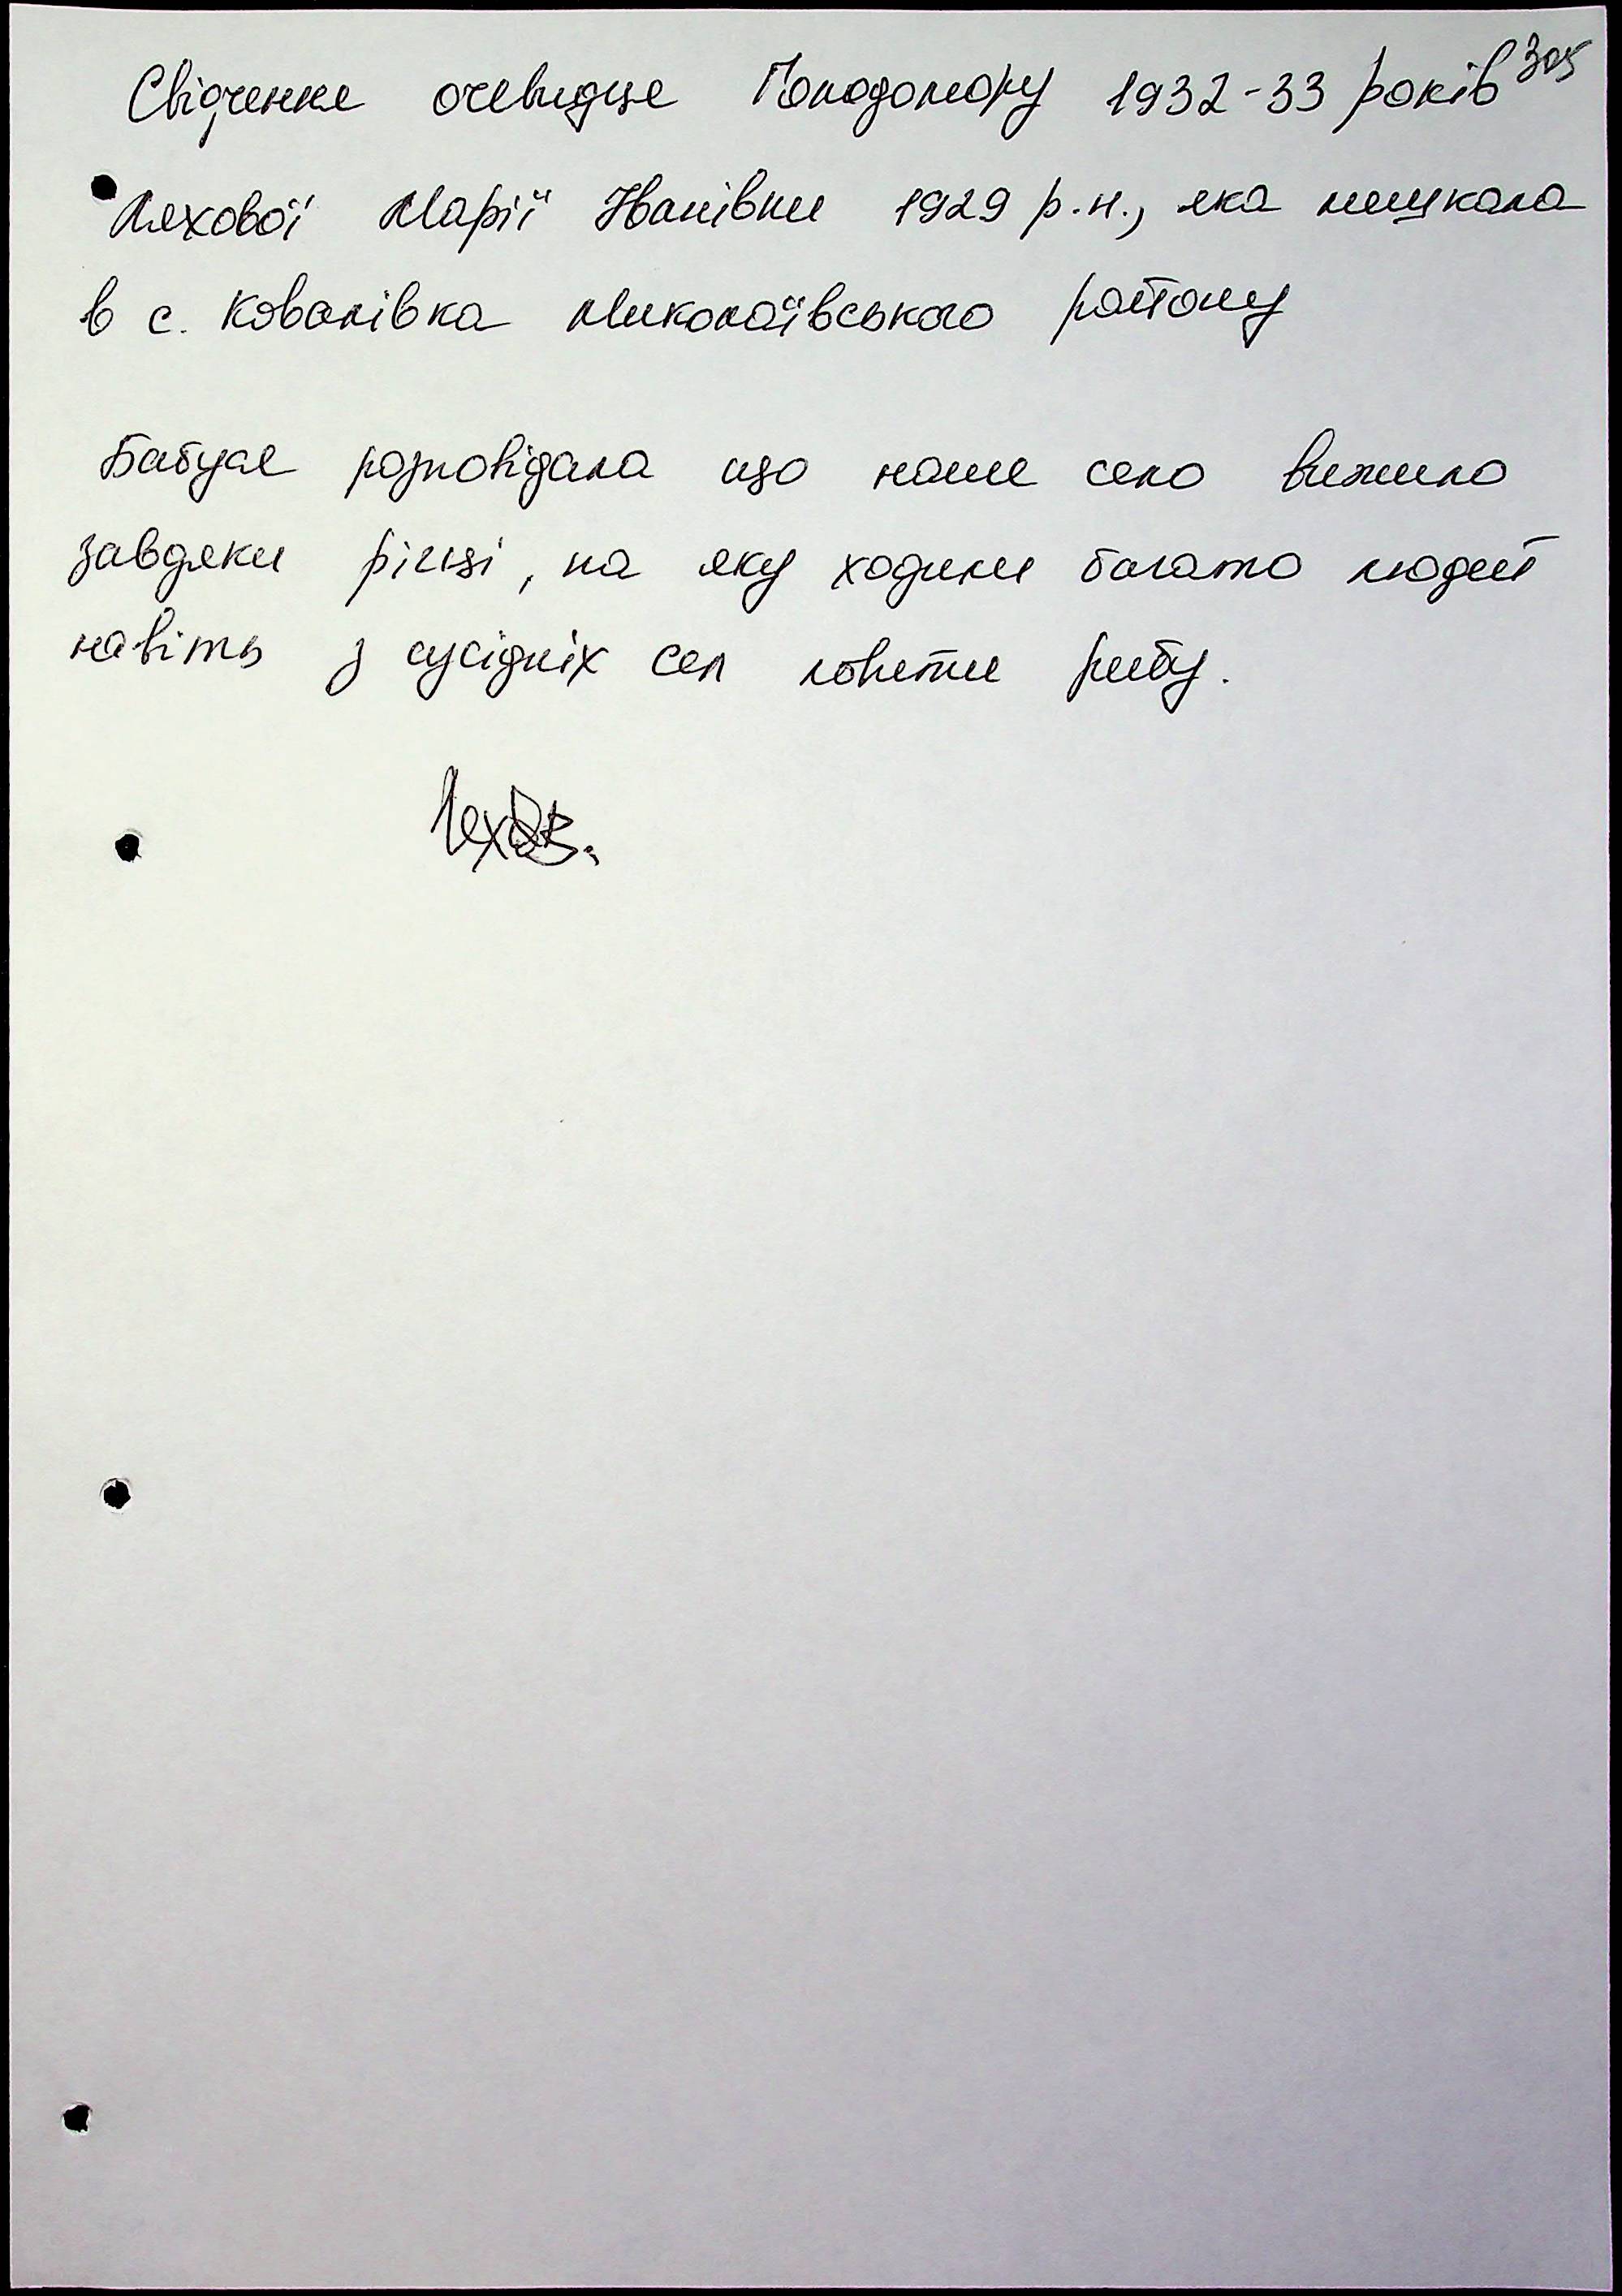 305
Свідчення очевидця Голодомору 1932-33 років
Ляхової Марії Іванівни 1929 р.н., яка мешкала
в с. Ковалівка Миколаївського району
Бабуся розповідала що наше село вижило
завдяки річці, на яку ходили багато людей
навіть з сусідніх сел ловити рибу.